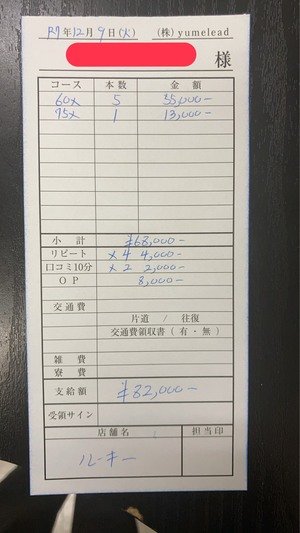 R7年12月9日(火) (株)yumelead
様
コース 本数 金額
60× 5 55,000-
75× 1 13,000-
小計 ¥68,000-
リピート ×4 4,000-
口コミ10分 ×2 2,000-
OP 8,000-
交通費
片道 / 往復
交通費領収書(有・無)
雑費
寮費
支給額 ¥82,000-
受領サイン
店舗名 担当印
ルーキー